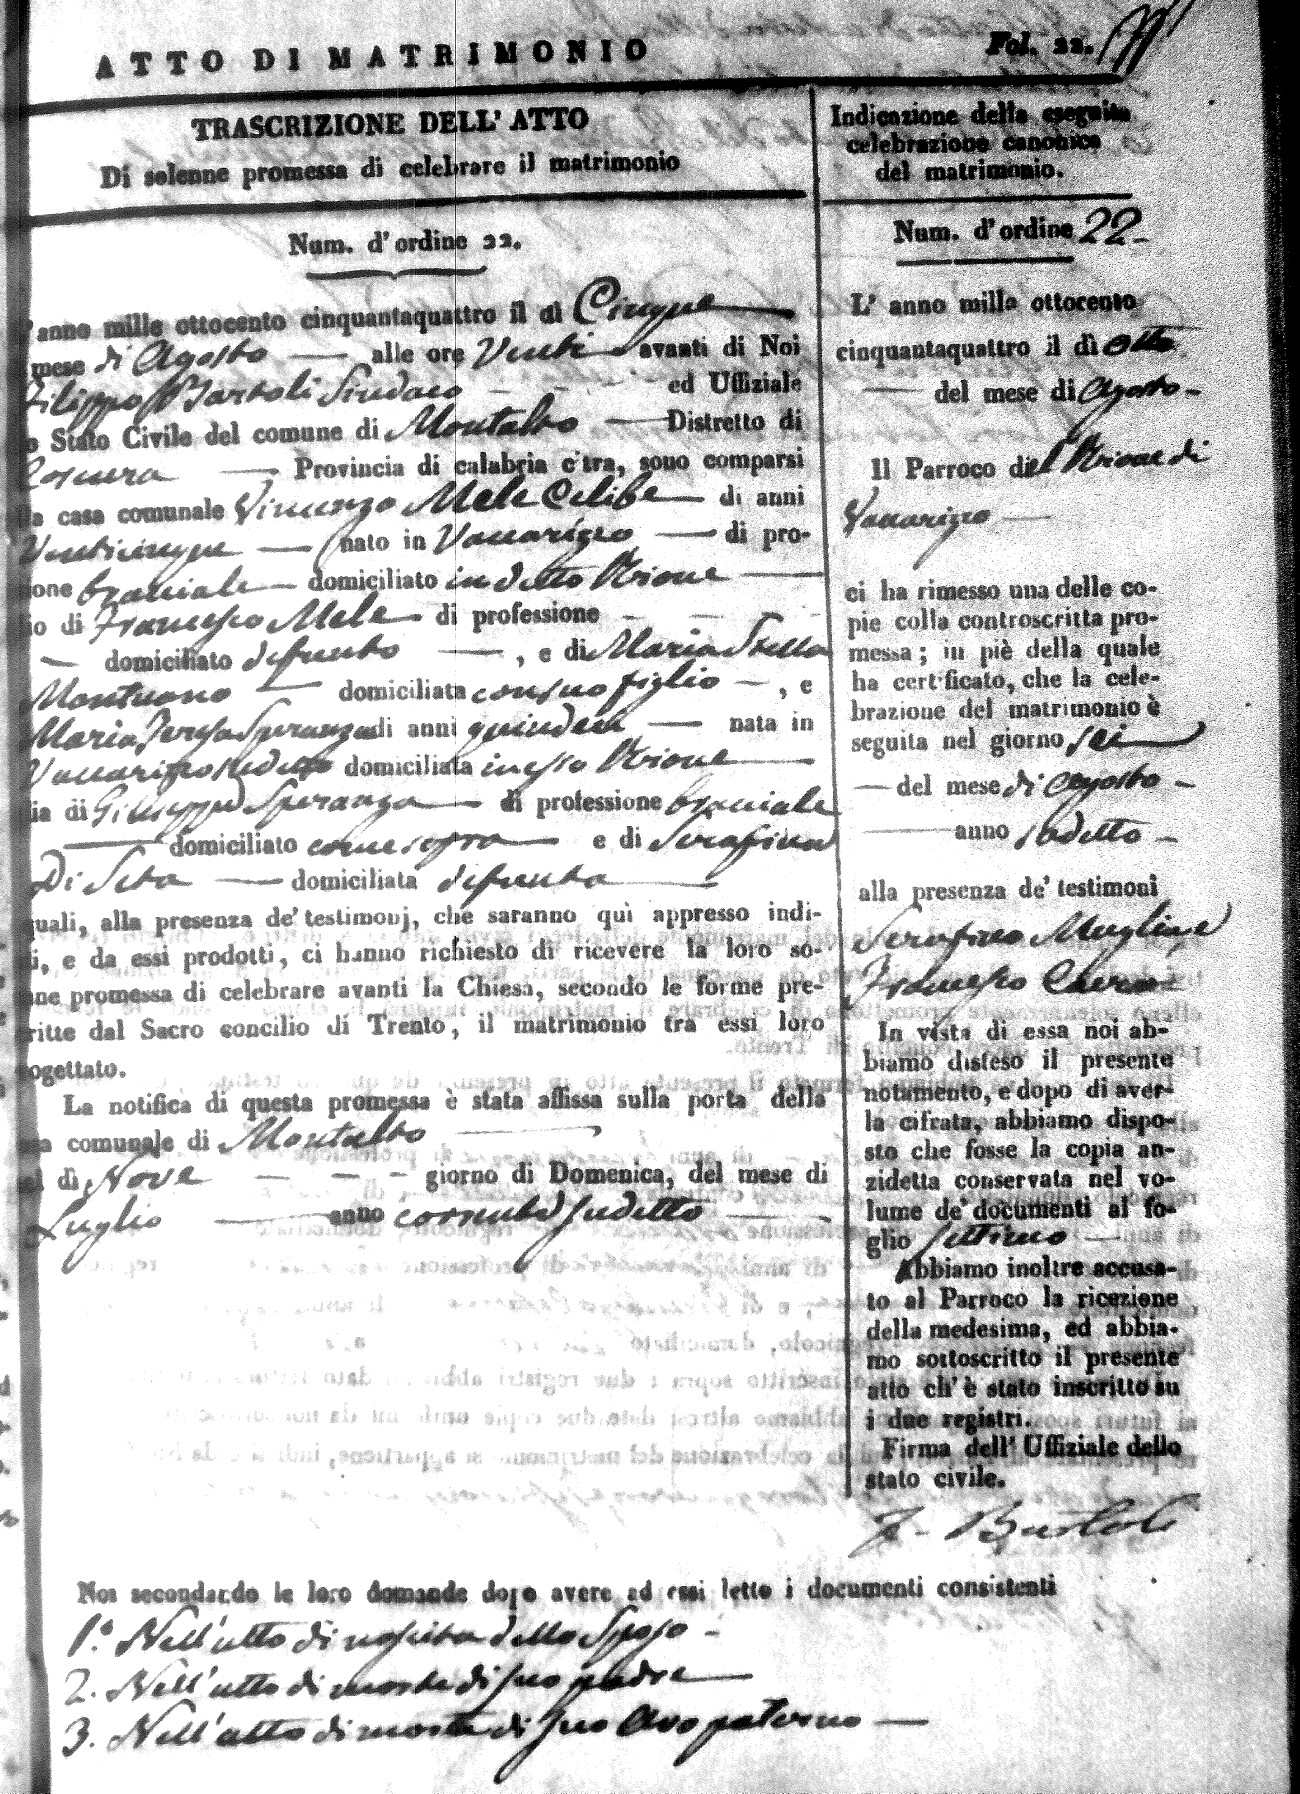 ATTO DI MATRIMONIO
Fol. 22.
TRASCRIZIONE DELL' ATTO
Di solenne promessa di celebrare il matrimonio
Num. d'ordine 22.
anno mille ottocento cinquantaquattro il dì Cinque
mese di Agosto — alle ore Venti avanti di Noi
Filippo Bartoli Sindaco ed Uffiziale
Stato Civile del comune di Montalto — Distretto di
Cosenza — Provincia di calabria citra, sono comparsi
casa comunale Vincenzo Mele Celibe — di anni
Venticinque — nato in Vaccarizzo — di pro-
one bracciale — domiciliato in detto Rione —
io di Francesco Mele — di professione — —
— domiciliato defunto — , e di Maria Stella
Montuono — domiciliata con suo figlio — , e
Maria Teresa Speranza di anni quindici — nata in
Vaccarizzo sudetto domiciliata in esso Rione —
ia di Giuseppe Speranza — di professione bracciale
— domiciliato come sopra — e di Serafina
Di Seta — domiciliata defunta —
quali, alla presenza de' testimonj, che saranno quì appresso indi-
ti, e da essi prodotti, ci hanno richiesto di ricevere la loro so-
ne promessa di celebrare avanti la Chiesa, secondo le forme pre-
ritte dal Sacro concilio di Trento, il matrimonio tra essi loro
ogettato.
La notifica di questa promessa è stata affissa sulla porta della
sa comunale di Montalto —
dì Nove — — — giorno di Domenica, del mese di
Luglio — anno corrente sudetto —
Indicazione della eseguita
celebrazione canonica
del matrimonio.
Num. d'ordine 22 -
L' anno mille ottocento
cinquantaquattro il dì otto
— del mese di Agosto -
Il Parroco del Rione di
Vaccarizzo —
ci ha rimesso una delle co-
pie colla controscritta pro-
messa; in piè della quale
ha certificato, che la cele-
brazione del matrimonio è
seguita nel giorno sei
— del mese di Agosto -
— anno sudetto -
alla presenza de' testimoni
Serafino e
Francesco
In vista di essa noi ab-
biamo disteso il presente
notamento, e dopo di aver-
la cifrata, abbiamo dispo-
sto che fosse la copia an-
zidetta conservata nel vo-
lume de' documenti al fo-
glio settimo —
Abbiamo inoltre accusa-
to al Parroco la ricezione
della medesima, ed abbia-
mo sottoscritto il presente
atto ch' è stato inscritto su
i due registri.
Firma dell' Uffiziale dello
stato civile.
F. Bartoli
Noi secondando le loro domande dopo avere ad essi letto i documenti consistenti
1.° Nell'atto di nascita dello Sposo -
2. Nell'atto di morte di suo padre —
3. Nell'atto di morte di suo Avo paterno —